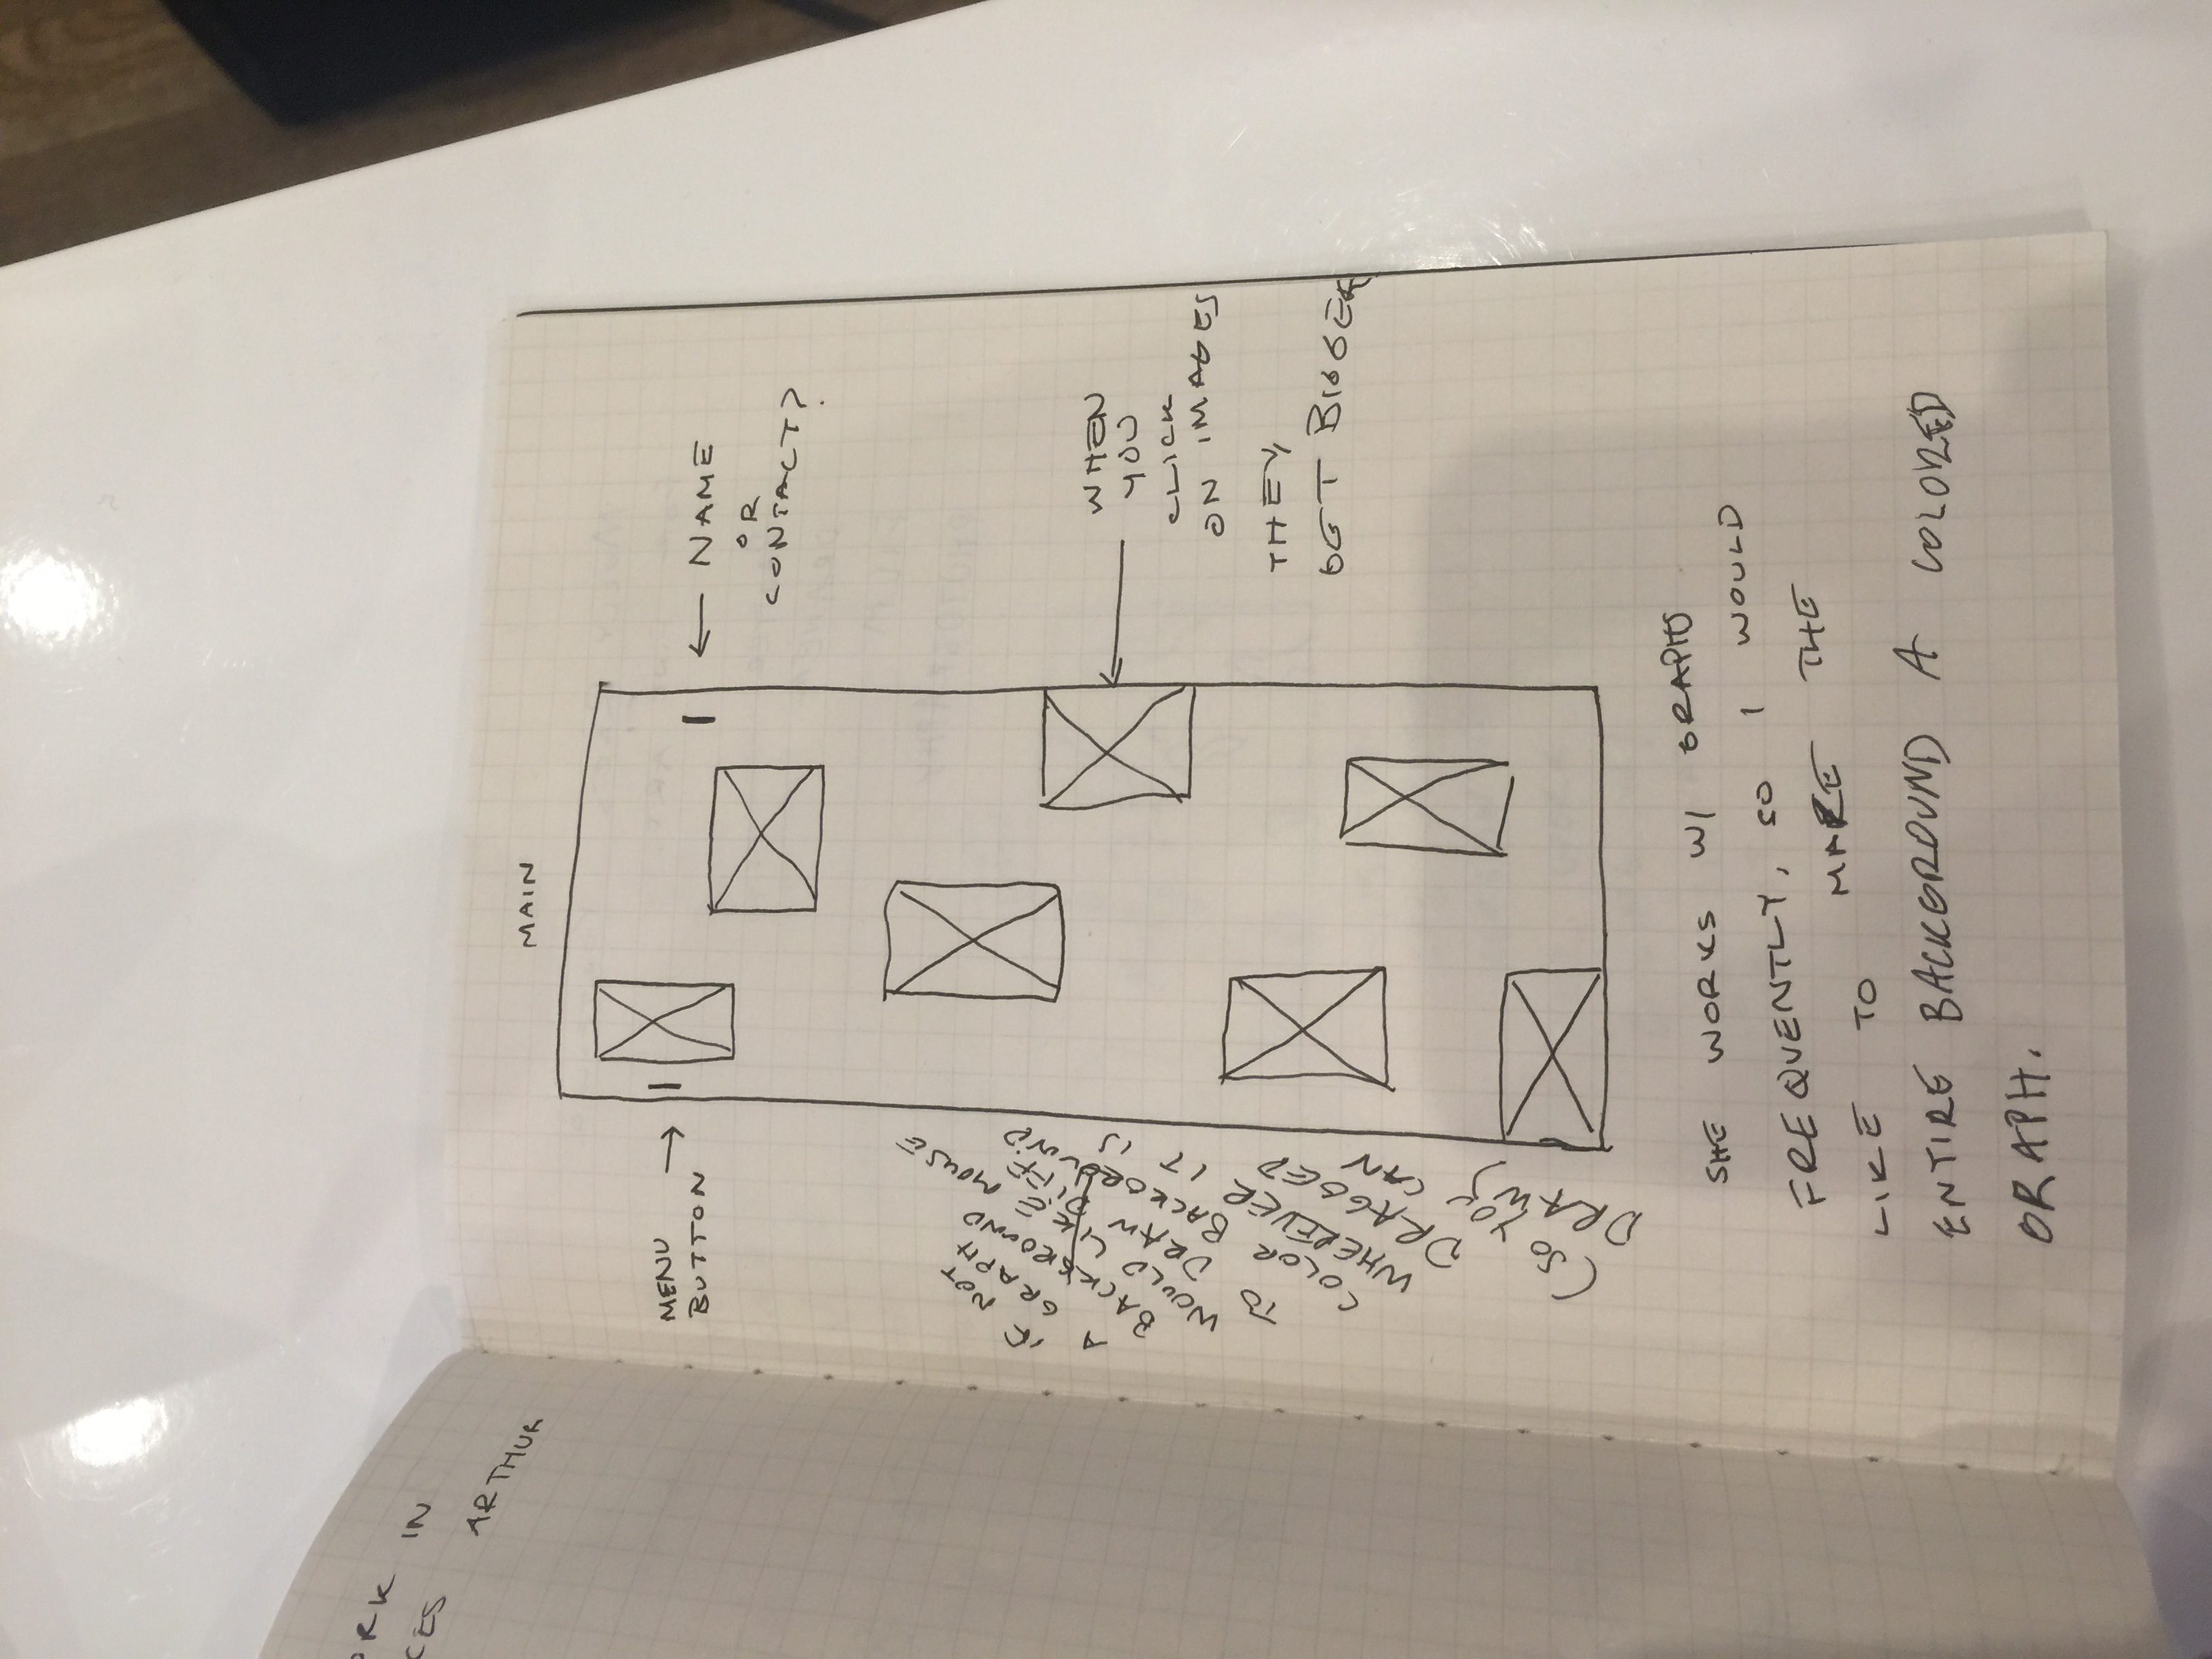 ORK IN
CES ARTHUR
MAIN
MENU
BUTTON
NAME
OR
CONTACT?
IF NOT
A GRAPH
BACKGROUND
WOULD LIKE MOUSE
TO DRAW DIFF.
COLOR BACKGROUND
WHEREVER IT IS
DRAGGED
(SO YOU CAN
DRAW)
WHEN
YOU
CLICK
ON IMAGES
THEY
GET BIGGER
SHE WORKS W/ GRAPHS
FREQUENTLY, SO I WOULD
LIKE TO MAKE THE
ENTIRE BACKGROUND A COLORED
GRAPH.